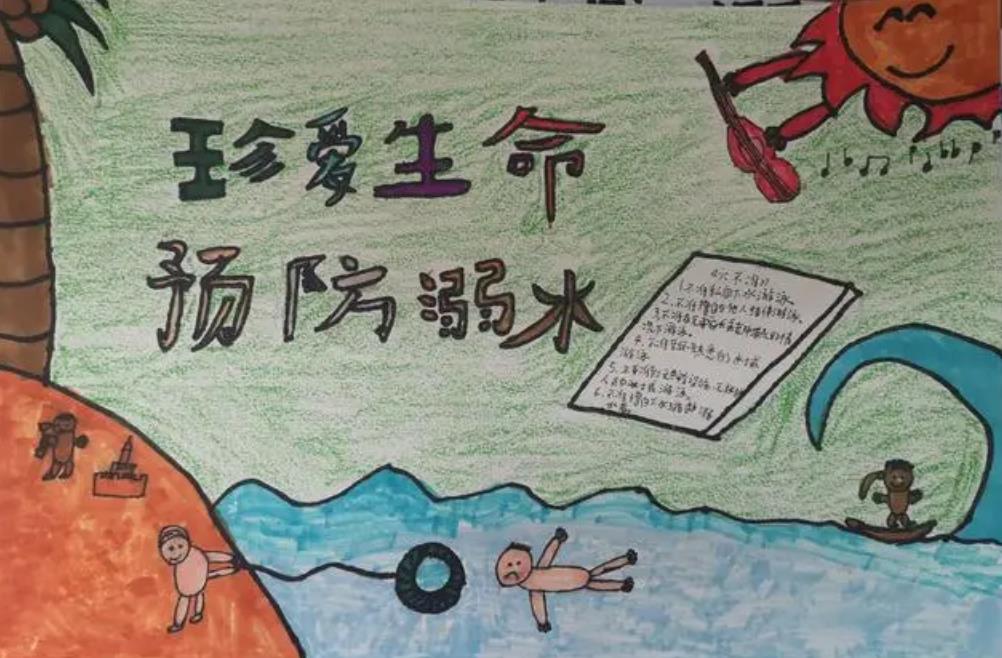 珍爱生命
预防溺水
《六不准》
1.不准私自下水游泳。
2.不准擅自与他人结伴游泳。
3.不准在无家长或老师带领的情
况下游泳。
4.不准到不熟悉的水域
游泳
5.不准到无安全设施、无救援
人员的水域游泳。
6.不准擅自下水施救